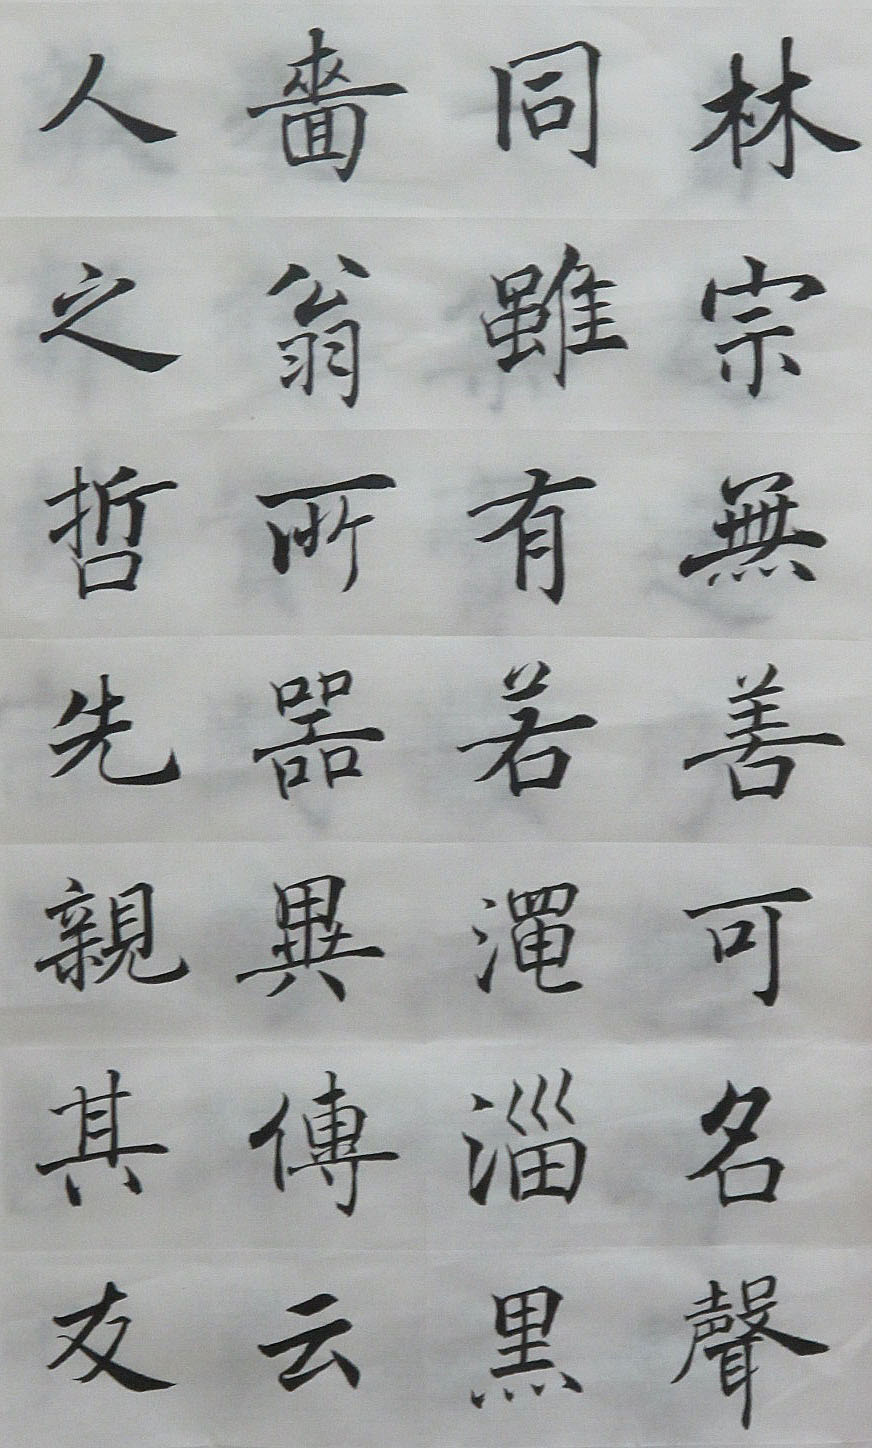 林宗無善可名聲
同雖有若澠淄黑
嗇翁所器異傳云
人之哲先親其友